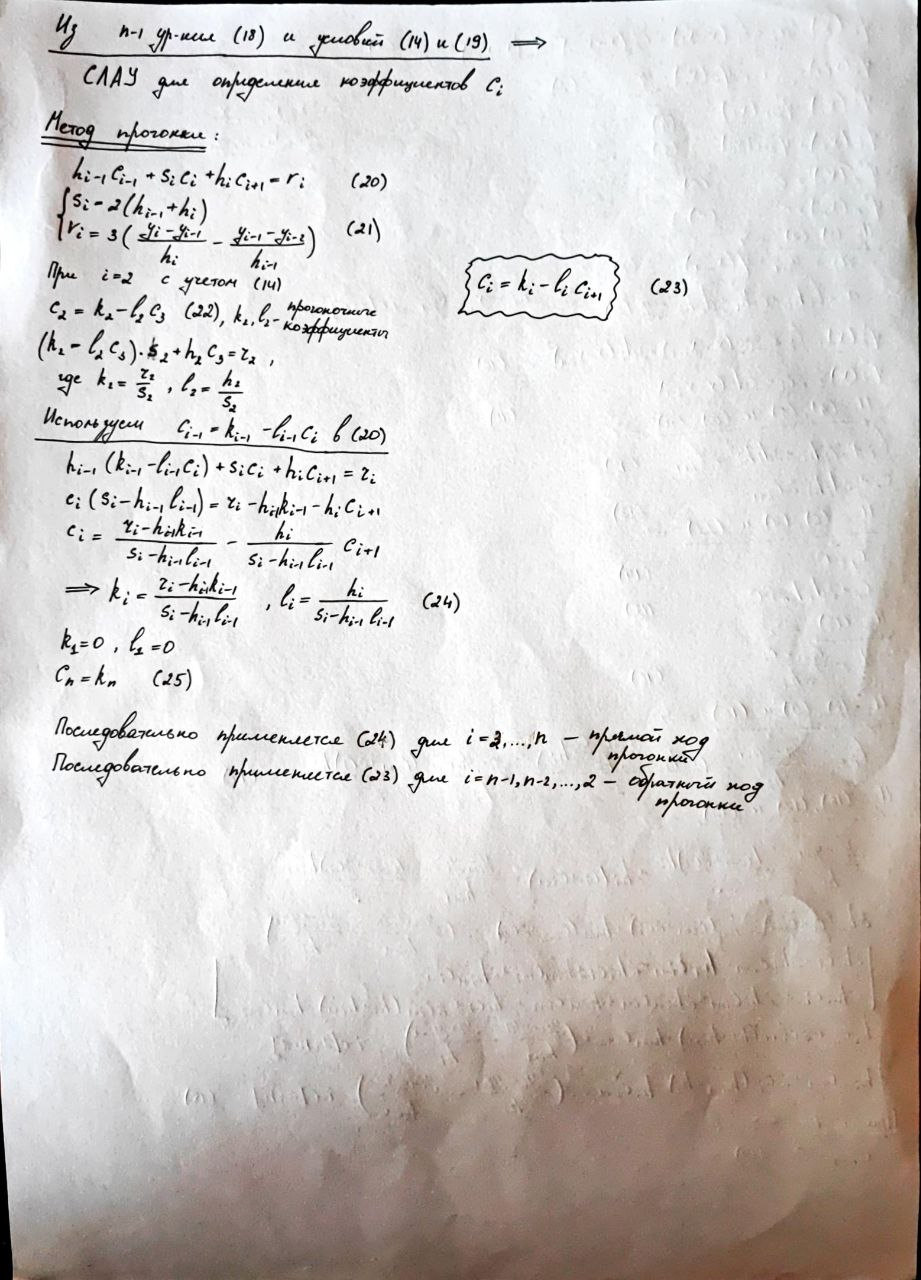 Из n-1 ур-ния (18) и условий (14) и (19) ⟹
СЛАУ для определения коэффициентов Ci
Метод прогонки:
h_{i-1} c_{i-1} + s_i c_i + h_i c_{i+1} = r_i (20)
{ s_i = 2(h_{i-1} + h_i)
r_i = 3( (y_i - y_{i-1})/h_i - (y_{i-1} - y_{i-2})/h_{i-1} ) (21)
При i=2 с учетом (14)
c_i = k_i - l_i c_{i+1} (23)
c_2 = k_2 - l_2 c_3 (22), k_2, l_2 - прогоночные коэффициенты
(k_2 - l_2 c_3)·s_2 + h_2 c_3 = r_2,
где k_2 = r_2/s_2, l_2 = h_2/s_2
Используем c_{i-1} = k_{i-1} - l_{i-1} c_i в (20)
h_{i-1} (k_{i-1} - l_{i-1} c_i) + s_i c_i + h_i c_{i+1} = r_i
c_i (s_i - h_{i-1} l_{i-1}) = r_i - h_{i-1} k_{i-1} - h_i c_{i+1}
c_i = (r_i - h_{i-1} k_{i-1})/(s_i - h_{i-1} l_{i-1}) - h_i/(s_i - h_{i-1} l_{i-1}) c_{i+1}
⟹ k_i = (r_i - h_{i-1} k_{i-1})/(s_i - h_{i-1} l_{i-1}), l_i = h_i/(s_i - h_{i-1} l_{i-1}) (24)
k_1 = 0, l_1 = 0
C_n = k_n (25)
Последовательно применяется (24) для i=2,...,n — прямой ход прогонки
Последовательно применяется (23) для i=n-1, n-2,..., 2 — обратный ход прогонки